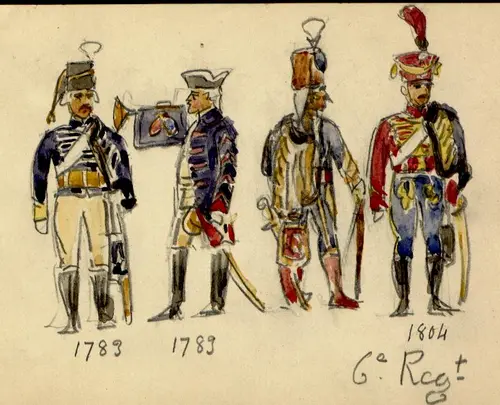 1789 1789 1804
6e Regt